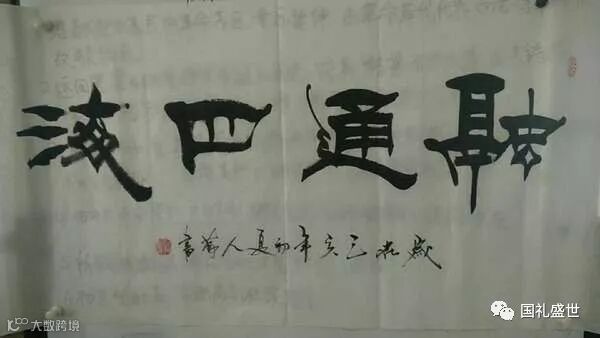 融通四海
歲在己亥年初夏人書
国礼盛世
大数跨境